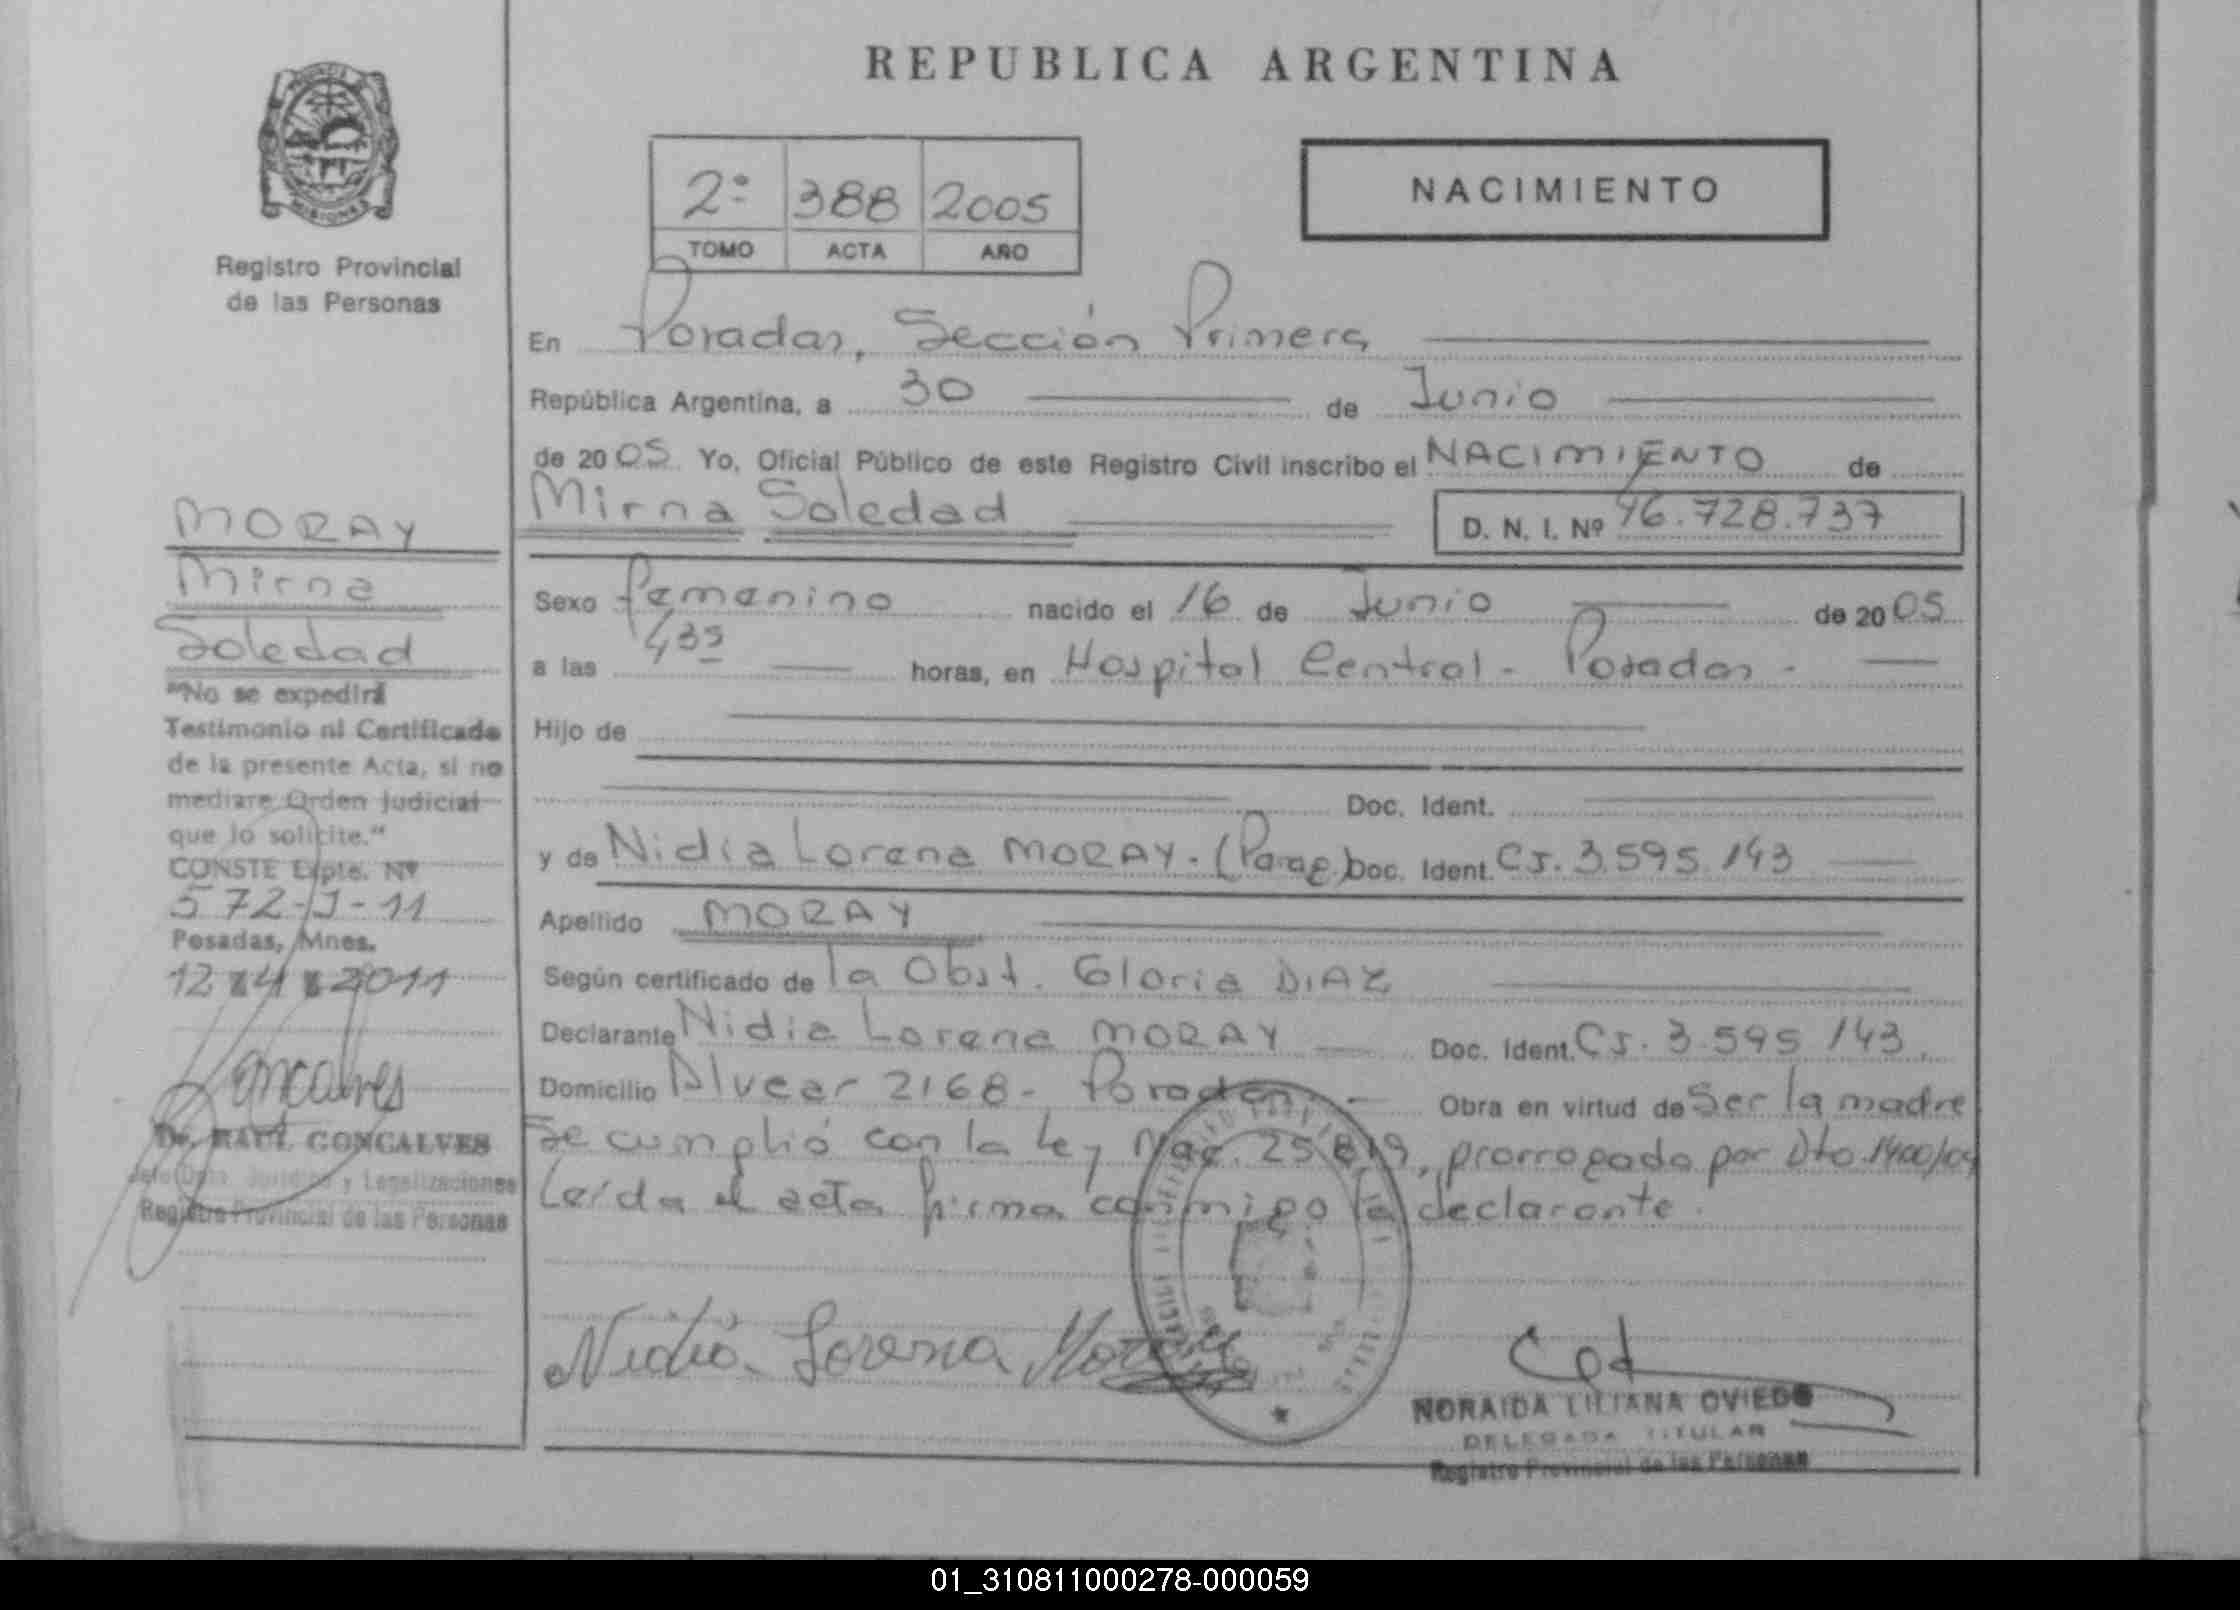 REPUBLICA ARGENTINA
MISIONES
Registro Provincial
de las Personas
2º 388 2005
TOMO ACTA AÑO
NACIMIENTO
En Posadas, Sección Primera
República Argentina, a 30 de Junio
de 2005 Yo, Oficial Público de este Registro Civil inscribo el NACIMIENTO de
Mirna Soledad D. N. I. Nº 46.728.737
Sexo femenino nacido el 16 de Junio de 2005
a las 4 35 horas, en Hospital Central - Posadas -
Hijo de
Doc. Ident.
y de Nidia Lorena MORAY. (Parag.) Doc. Ident. CI. 3.595.143
Apellido MORAY
Según certificado de la Obst. Gloria DIAZ
Declarante Nidia Lorena MORAY Doc. Ident. CI. 3.595.143
Domicilio Alvear 2168 - Posadas - Obra en virtud de Ser la madre
Se cumplió con la Ley Nac. 25.819, prorrogada por Dto. 1400/04
Leída el acta firma conmigo la declarante.
Nidia Lorena Moray
NORAIDA LILIANA OVIEDO
DELEGADA TITULAR
Registro Provincial de las Personas
MORAY
Mirna
Soledad
"No se expedirá
Testimonio ni Certificado
de la presente Acta, si no
mediare Orden Judicial
que lo solicite."
CONSTE Expte. Nº
572-J-11
Posadas, Mnes.
12 4 2011
Goncalves
Dr. RAUL GONCALVES
Jefe Dpto. Jurídico y Legalizaciones
Registro Provincial de las Personas
01_310811000278-000059